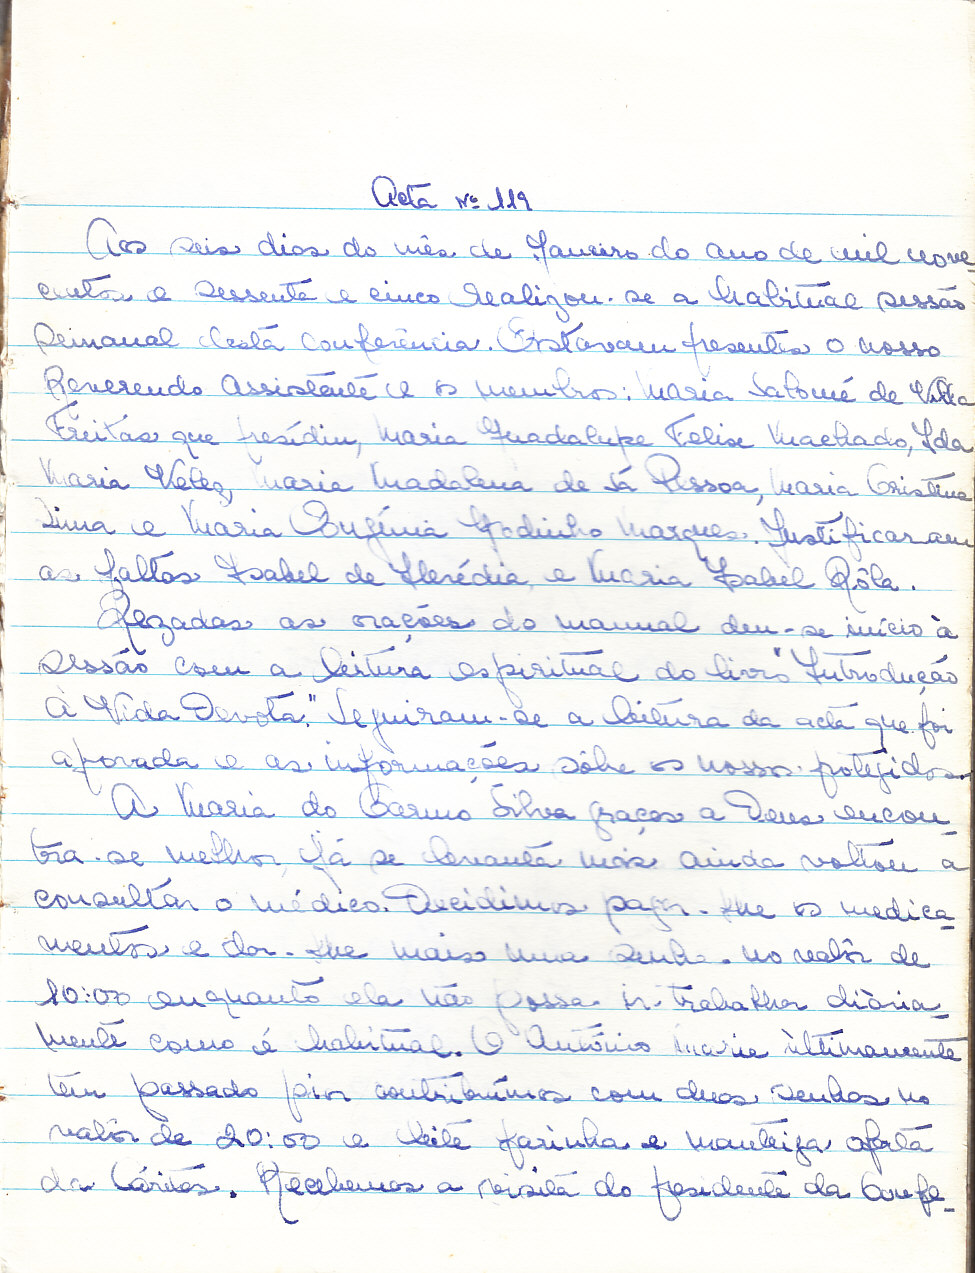 Acta Nº 119
Aos seis dias do mês de Janeiro do ano de mil nove
centos e sessenta e cinco realizou-se a habitual sessão
semanal desta conferência. Estavam presentes o nosso
Reverendo Assistente e os membros: Maria Salomé de
Freitas que presidiu, Maria Guadalupe Felix Machado, Ida
Maria Velez, Maria Madalena de Sá Pessoa, Maria Cristina
Lima e Maria Eugénia Godinho Marques. Justificaram
as faltas Isabel de Herédia e Maria Isabel Rôla.
Rezadas as orações do manual deu-se início à
sessão com a leitura espiritual do livro "Introdução
à Vida Devota." Seguiram-se a leitura da acta que foi
aporvada e as informações sôbe os nossos potegidos.
A Maria do Carmo Silva graças a Deus encon-
tra-se melhor, já se levanta mas ainda voltou a
consultar o médico. Decidimos pagar-lhe os medica-
mentos e dar-lhe mais uma senha no valôr de
10:00 enquanto ela não possa ir trabalhar diària-
mente como é habitual. O António Maria ùltimamente
tem passado pior contribuímos com duas senhas no
valôr de 20:00 e leite farinha e manteiga oferta
da Cáritas. Recebemos a visita do presidente da Confe-